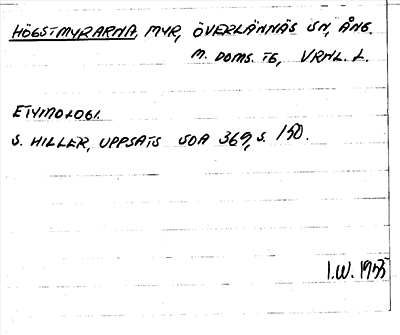 HÖGSTMYRARNA, MYR, ÖVERLÄNNÄS SN, ÅNG.
M. DOMS. TG, VRML. L.
ETYMOLOGI.
S. HILLER, UPPSATS SOA 369, S. 150.
I.W. 1955